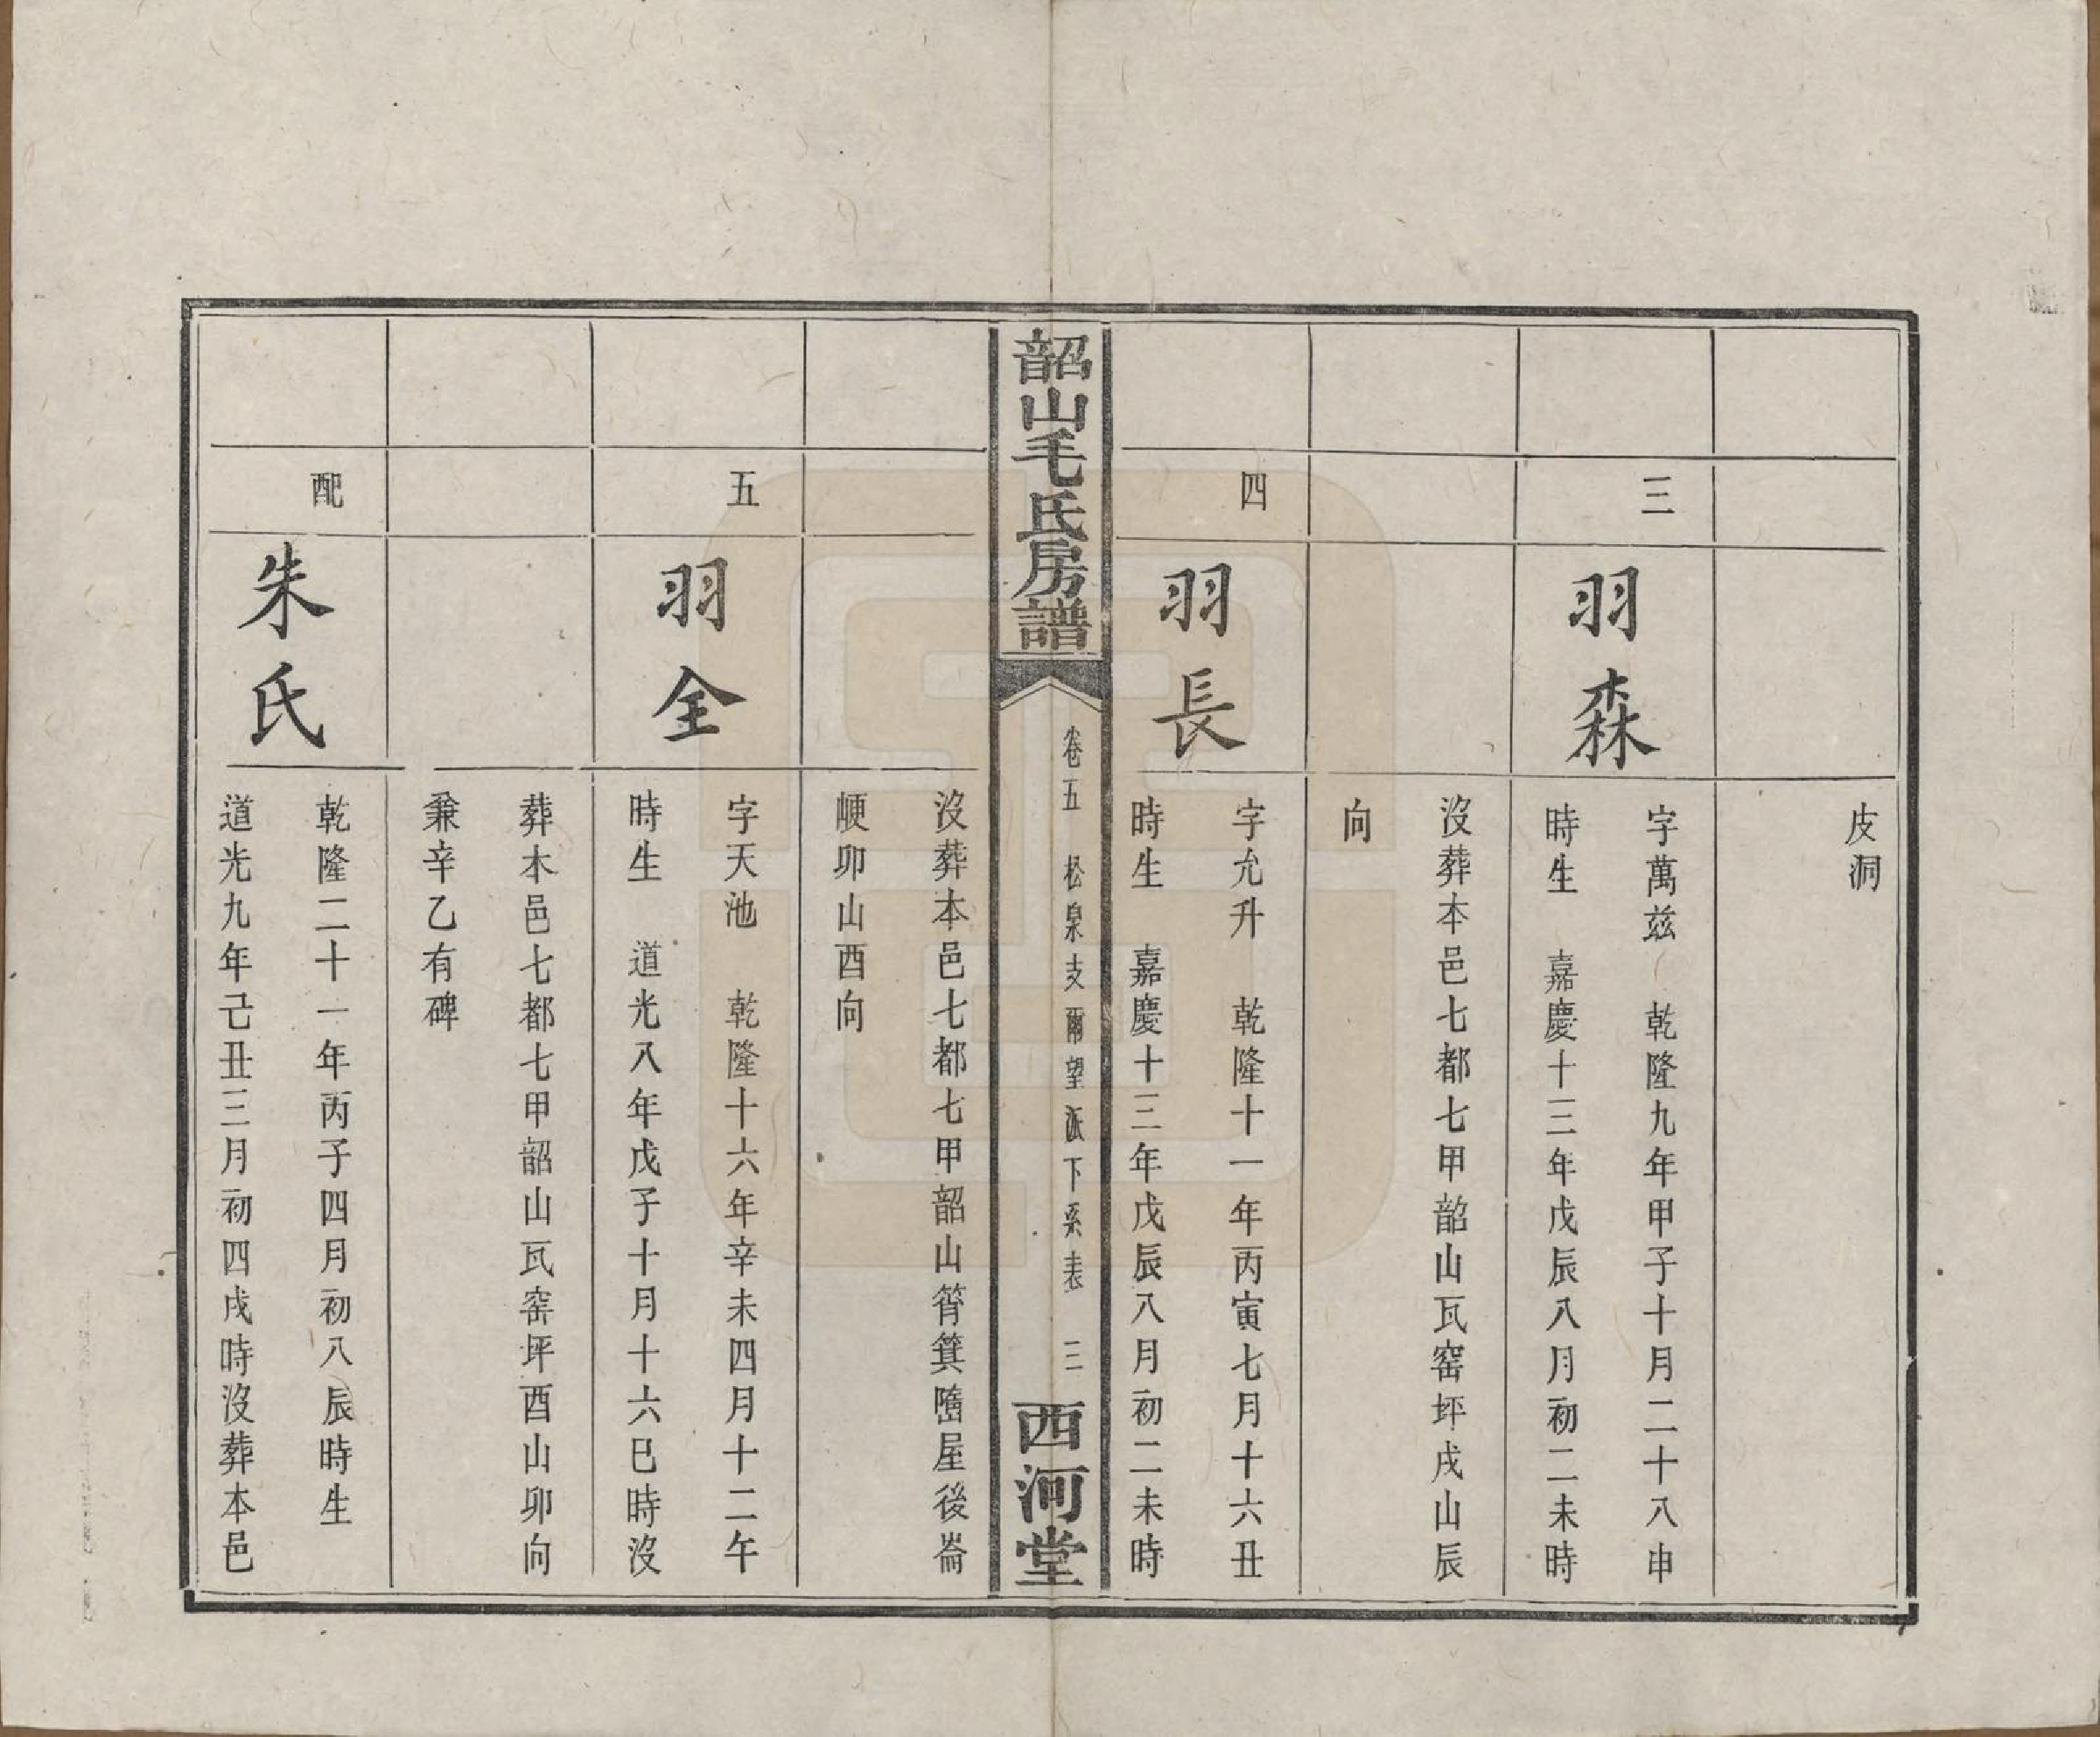 皮洞
三
羽森
字萬兹 乾隆九年甲子十月二十八申
時生 嘉慶十三年戊辰八月初二未時
沒葬本邑七都七甲韶山瓦窑坪戌山辰
向
四
羽長
字允升 乾隆十一年丙寅七月十六丑
時生 嘉慶十三年戊辰八月初二未時
韶山毛氏房譜
卷五 松泉支爾望派下系表 三
西河堂
沒葬本邑七都七甲韶山筲箕嶞屋後崙
㟰卯山酉向
五
羽全
字天池 乾隆十六年辛未四月十二午
時生 道光八年戊子十月十六巳時沒
葬木邑七都七甲韶山瓦窑坪酉山卯向
兼辛乙有碑
配
朱氏
乾隆二十一年丙子四月初八辰時生
道光九年己丑三月初四戌時沒葬本邑